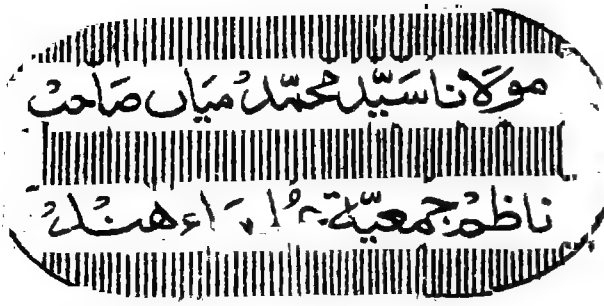 مولانا سیّد محمّد میاں صاحب
ناظم جمعیّة علماء ہند